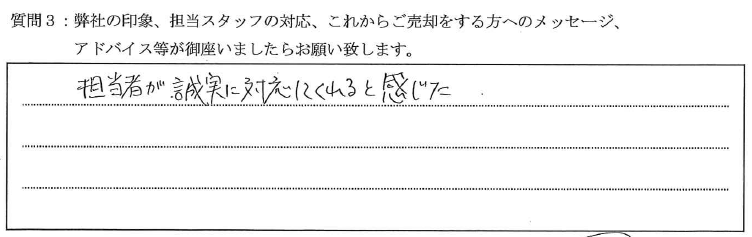 質問３：弊社の印象、担当スタッフの対応、これからご売却をする方へのメッセージ、
アドバイス等が御座いましたらお願い致します。
担当者が誠実に対応してくれると感じた